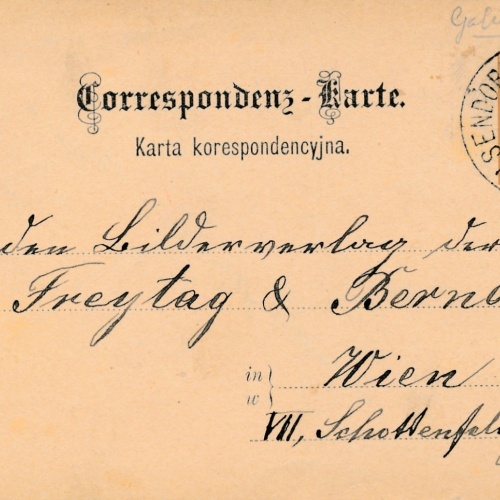 Correspondenz-Karte.
Karta korespondencyjna.
SENDOR
den Bilderverlag der
Freytag & Bernd
in } Wien
w }
VII, Schottenfeld